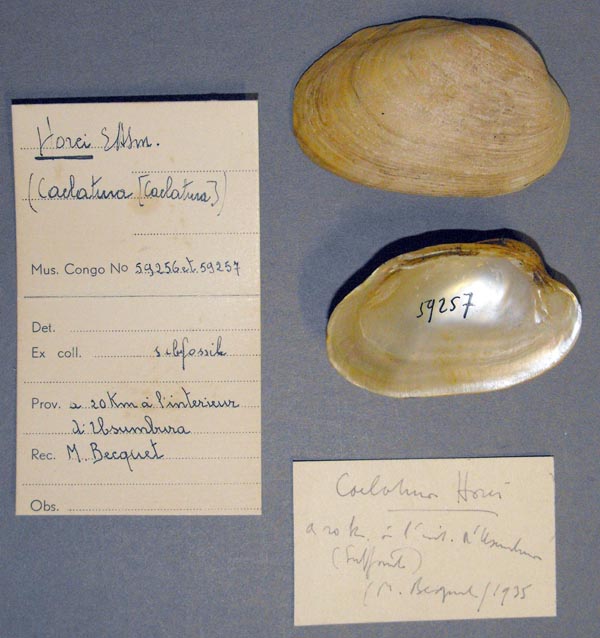 Horei EASm.
(Caelatura [Caelatura])
Mus. Congo No 59256 et 59257
Det.
Ex coll. subfossile
Prov. a 20 Km à l'interieur
d'Usumbura
Rec. M. Becquet
Obs.
59257
Caelatura Horei
a 20 k. à l'int. d'Usumbura
(Subfossile)
(M. Becquet/1935